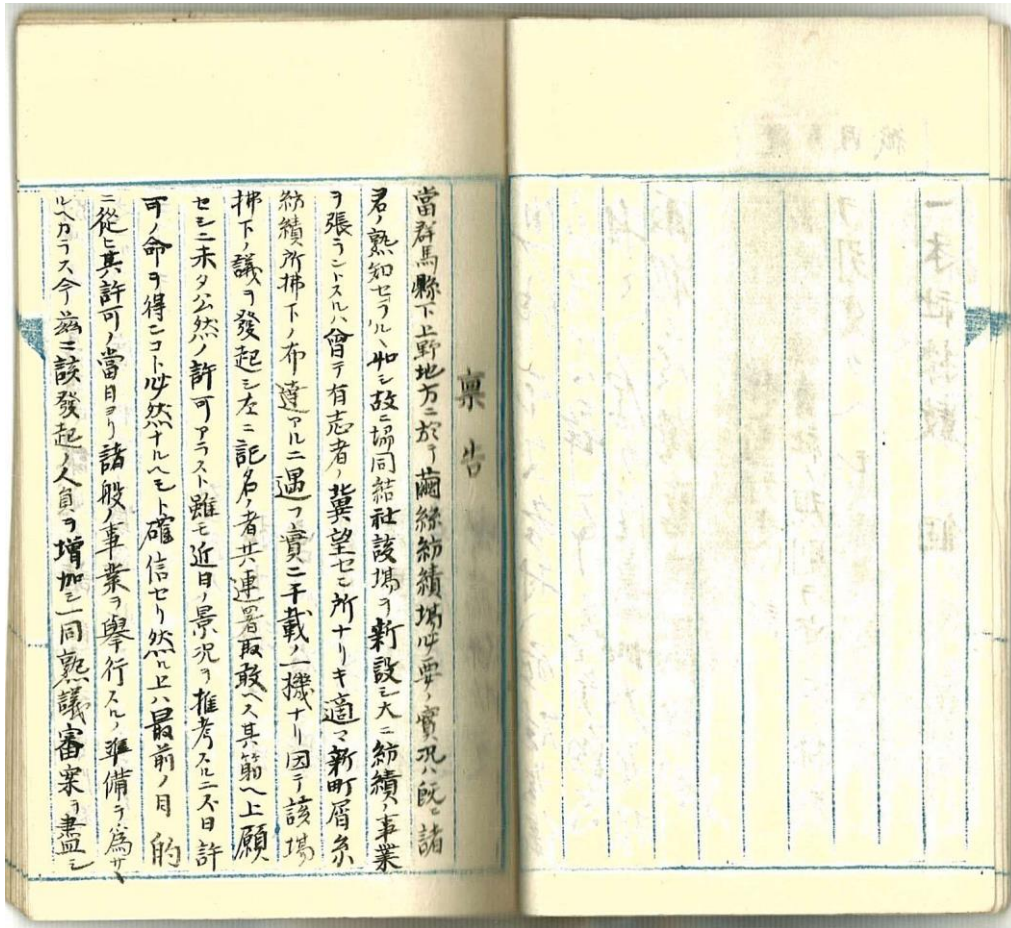 稟告
當群馬縣下上野地方ニ於テ繭絲紡績場必要ノ實況ハ既ニ諸
君ノ熟知セラルヽ如シ故ニ協同結社該塲ヲ新設シ大ニ紡績ノ事業
ヲ張ラントスルハ曾テ有志者ノ冀望セシ所ナリキ適マ新町屑糸
紡績所拂下ノ布達アルニ遇フ實ニ千載ノ一機ナリ因テ該塲
拂下ノ議ヲ發起シ左ニ記名ノ者共連署取敢ヘス其筋ヘ上願
セシニ未タ公然ノ許可アラスト雖モ近日ノ景況ヲ推考スルニ不日許
可ノ命ヲ得ンコト必然ナルヘシト確信セリ然ル上ハ最前ノ目的
ニ從ヒ其許可ノ當日ヨリ諸般ノ事業ヲ擧行スルノ準備ヲ爲サヽ
ルヘカラス今茲ニ該發起ノ人員ヲ增加シ一同熟議審案ヲ盡シ